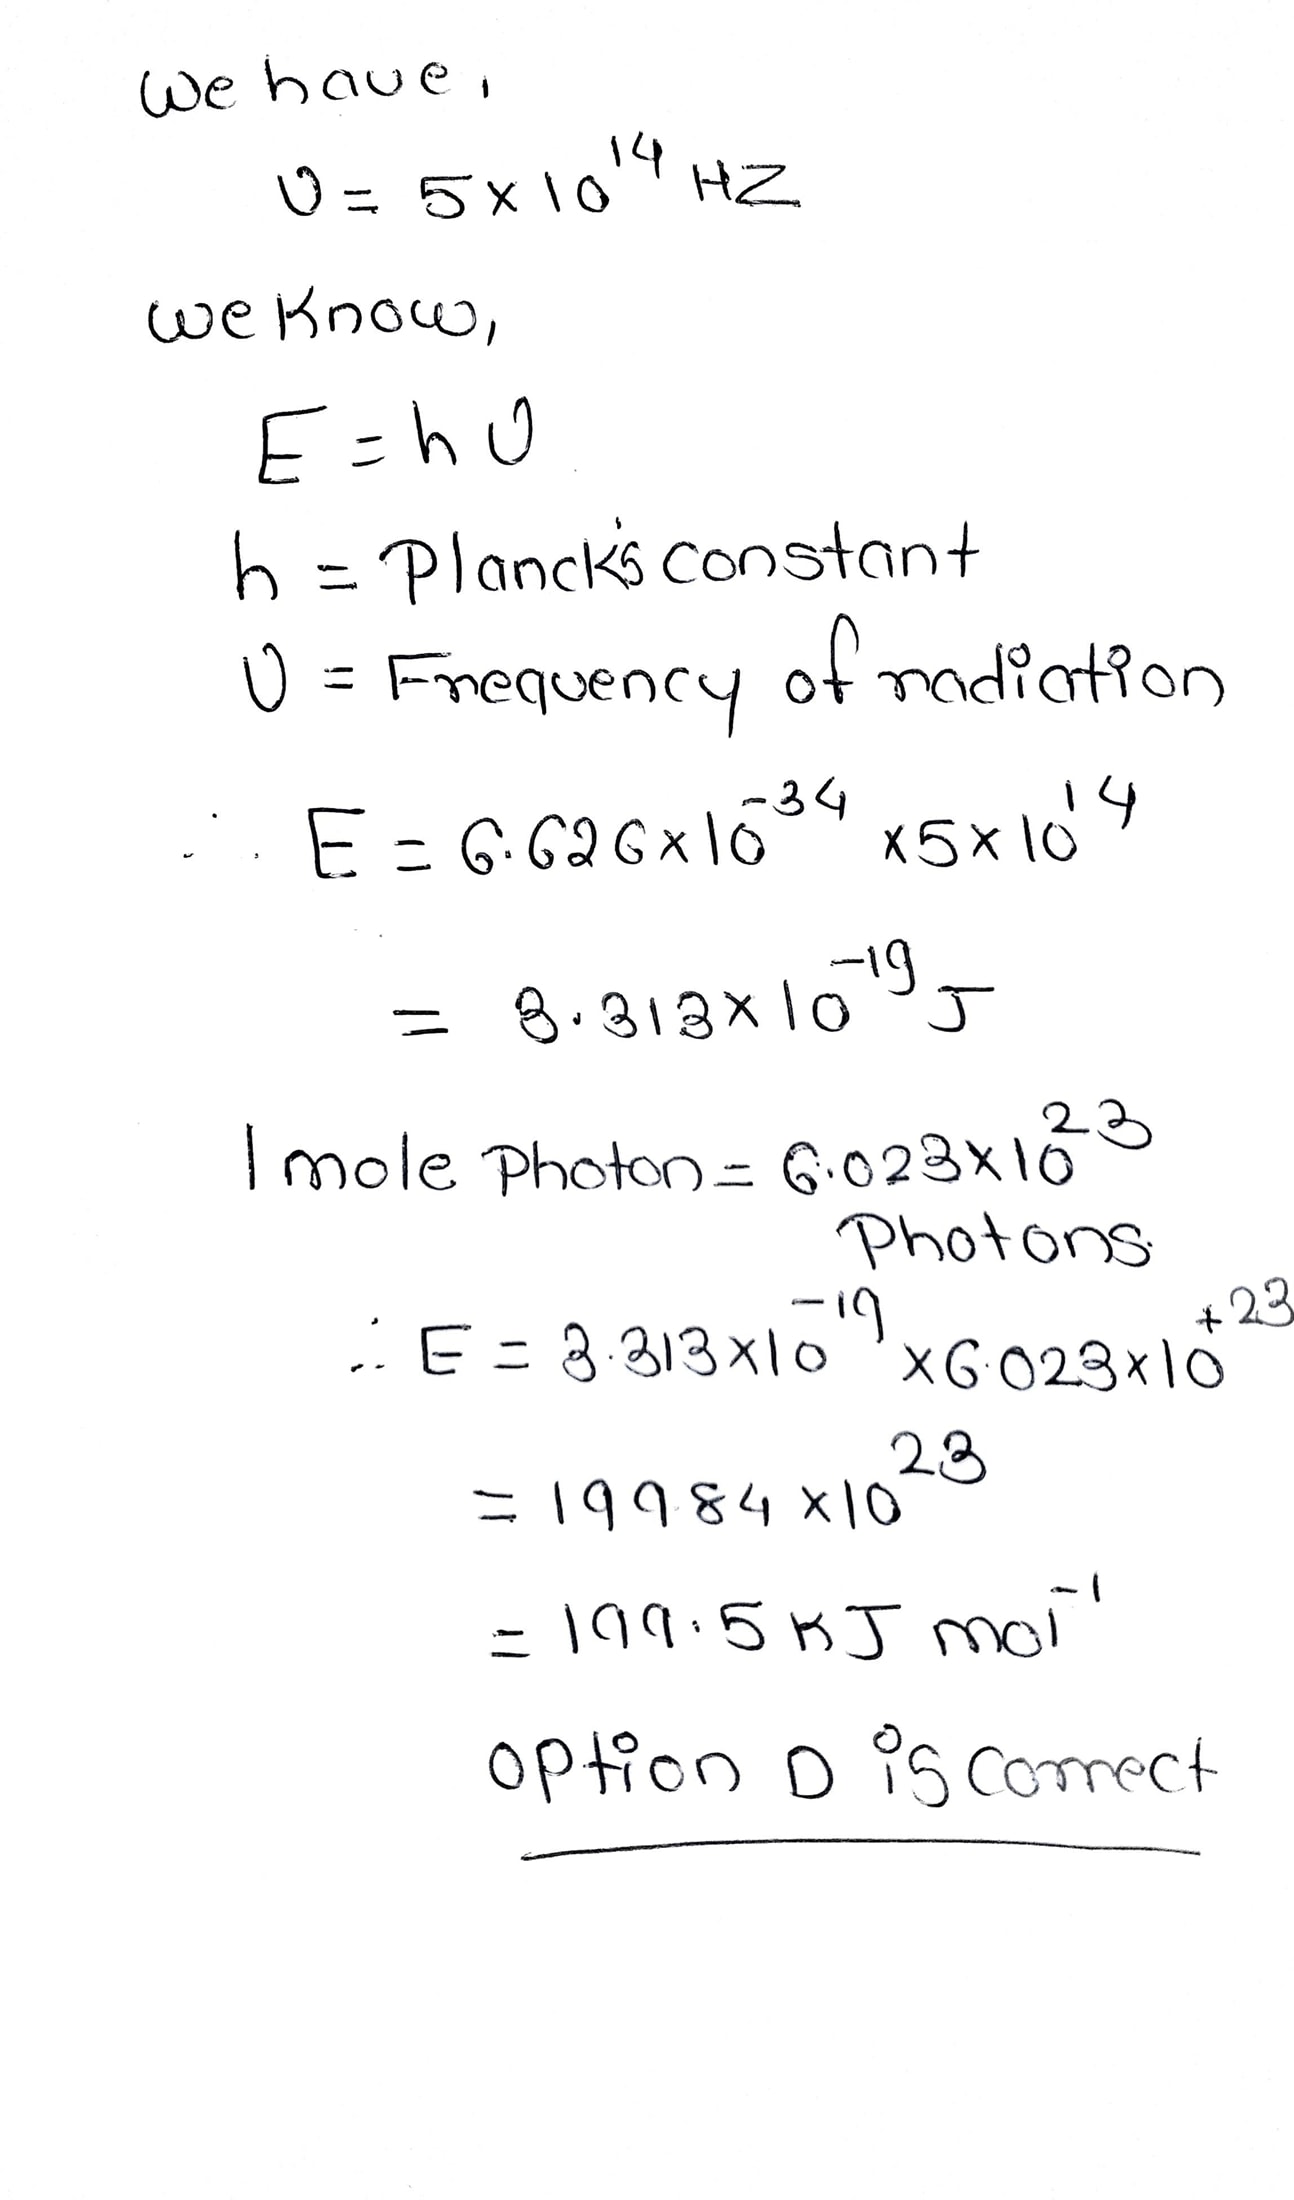 we have,
υ = 5 x 10^14 HZ
we know,
E = h υ
h = Planck's constant
υ = Frequency of radiation
∴ E = 6.626 x 10^-34 x 5 x 10^14
= 3.313 x 10^-19 J
1 mole Photon = 6.023 x 10^23
Photons.
∴ E = 3.313 x 10^-19 x 6.023 x 10^+23
= 199.84 x 10^23
= 199.5 KJ mol^-1
option D is correct